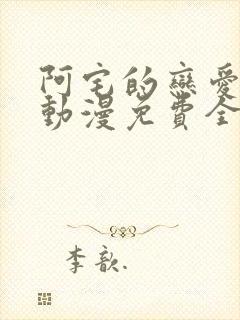 阿宅的戀愛
動漫免費全
李歆.